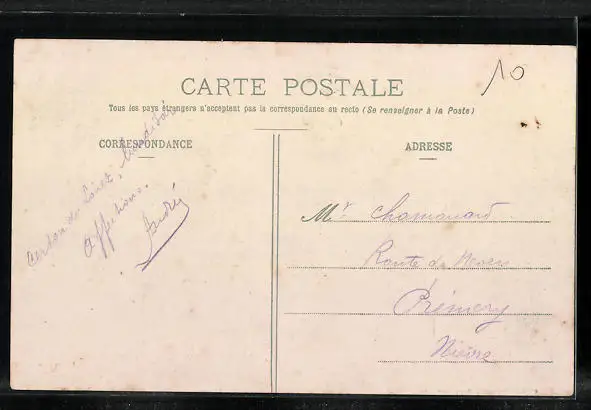 10
CARTE POSTALE
Tous les pays étrangers n'acceptent pas la correspondance au recto (Se renseigner à la Poste)
CORRESPONDANCE
Affections.
André
ADRESSE
Mr Chamonard
Route de Nevers
Prémery
Nièvre